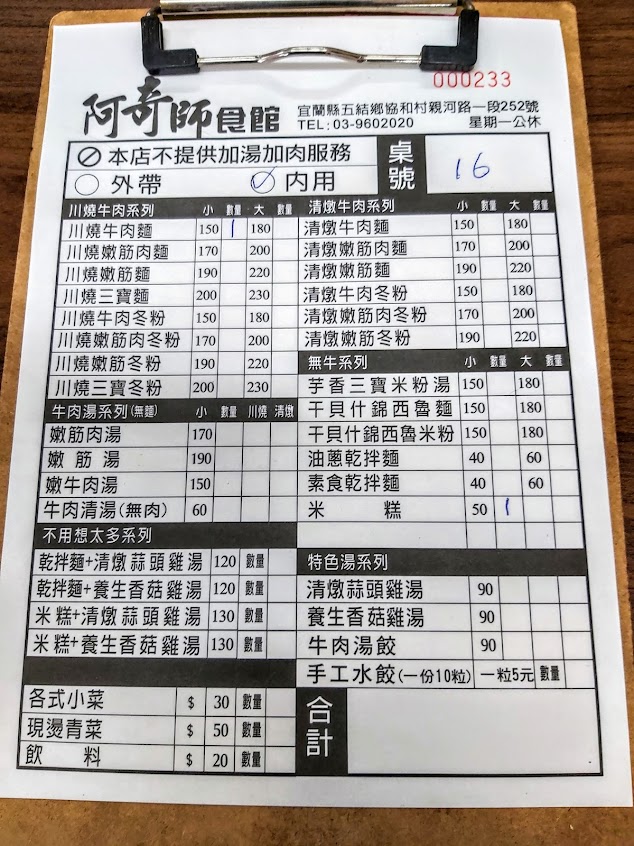 000233
阿奇師食館
宜蘭縣五結鄉協和村親河路一段252號
TEL:03-9602020 星期一公休
本店不提供加湯加肉服務
外帶 內用
桌號 16
川燒牛肉系列 小 數量 大 數量
川燒牛肉麵 150 1 180
川燒嫩筋肉麵 170 200
川燒嫩筋麵 190 220
川燒三寶麵 200 230
川燒牛肉冬粉 150 180
川燒嫩筋肉冬粉 170 200
川燒嫩筋冬粉 190 220
川燒三寶冬粉 200 230
牛肉湯系列(無麵) 小 數量 川燒 清燉
嫩筋肉湯 170
嫩筋湯 190
嫩牛肉湯 150
牛肉清湯(無肉) 60
不用想太多系列
乾拌麵+清燉蒜頭雞湯 120 數量
乾拌麵+養生香菇雞湯 120 數量
米糕+清燉蒜頭雞湯 130 數量
米糕+養生香菇雞湯 130 數量
各式小菜 $ 30 數量
現燙青菜 $ 50 數量
飲料 $ 20 數量
清燉牛肉系列 小 數量 大 數量
清燉牛肉麵 150 180
清燉嫩筋肉麵 170 200
清燉嫩筋麵 190 220
清燉牛肉冬粉 150 180
清燉嫩筋肉冬粉 170 200
清燉嫩筋冬粉 190 220
無牛系列 小 數量 大 數量
芋香三寶米粉湯 150 180
干貝什錦西魯麵 150 180
干貝什錦西魯米粉 150 180
油蔥乾拌麵 40 60
素食乾拌麵 40 60
米糕 50 1
特色湯系列
清燉蒜頭雞湯 90
養生香菇雞湯 90
牛肉湯餃 90
手工水餃(一份10粒) 一粒5元 數量
合計